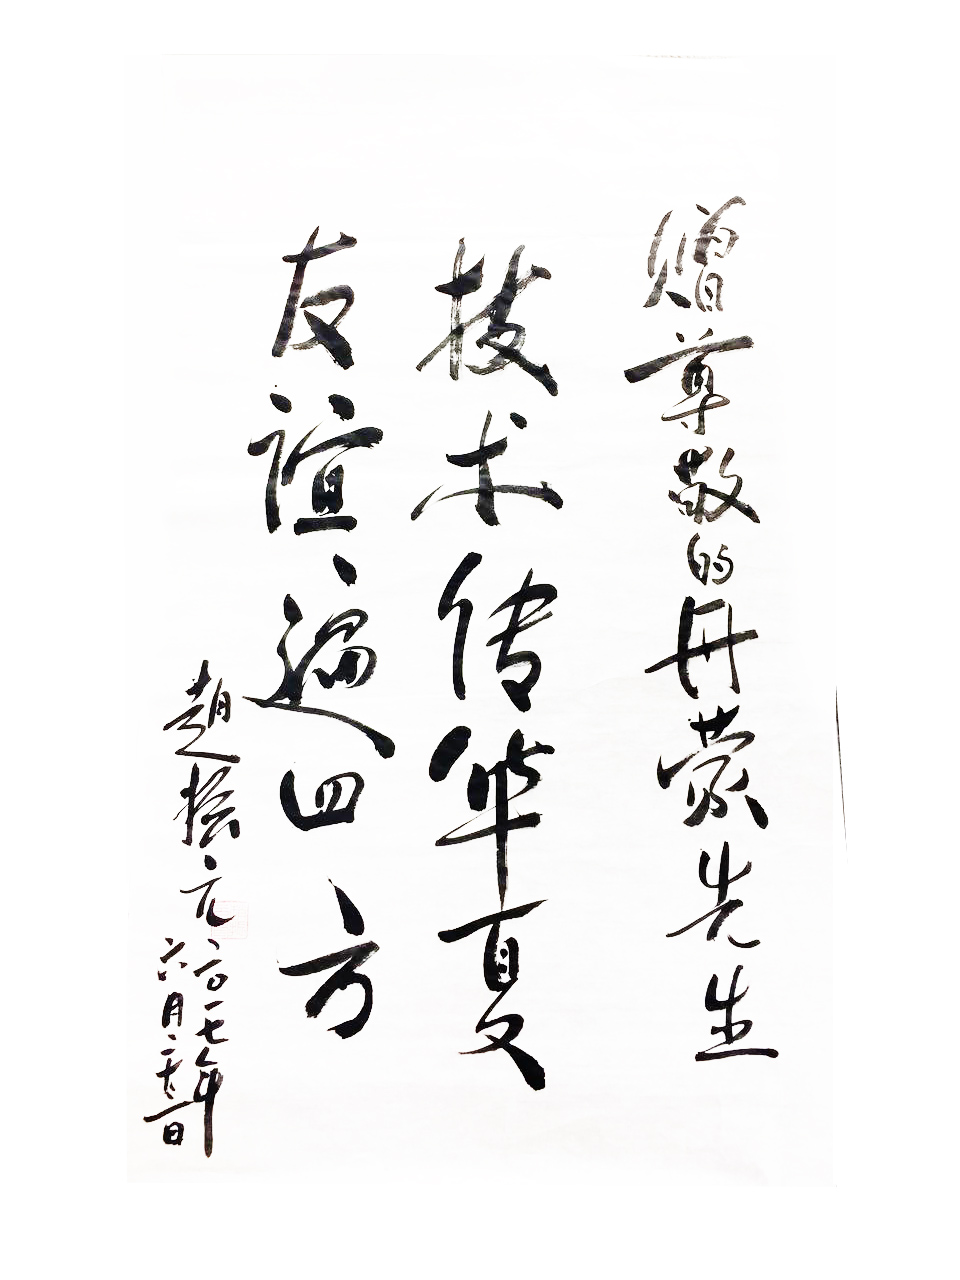 赠尊敬的丹蒙先生
技术传华夏
友谊遍四方
赵振元
二〇一七年
六月二十八日